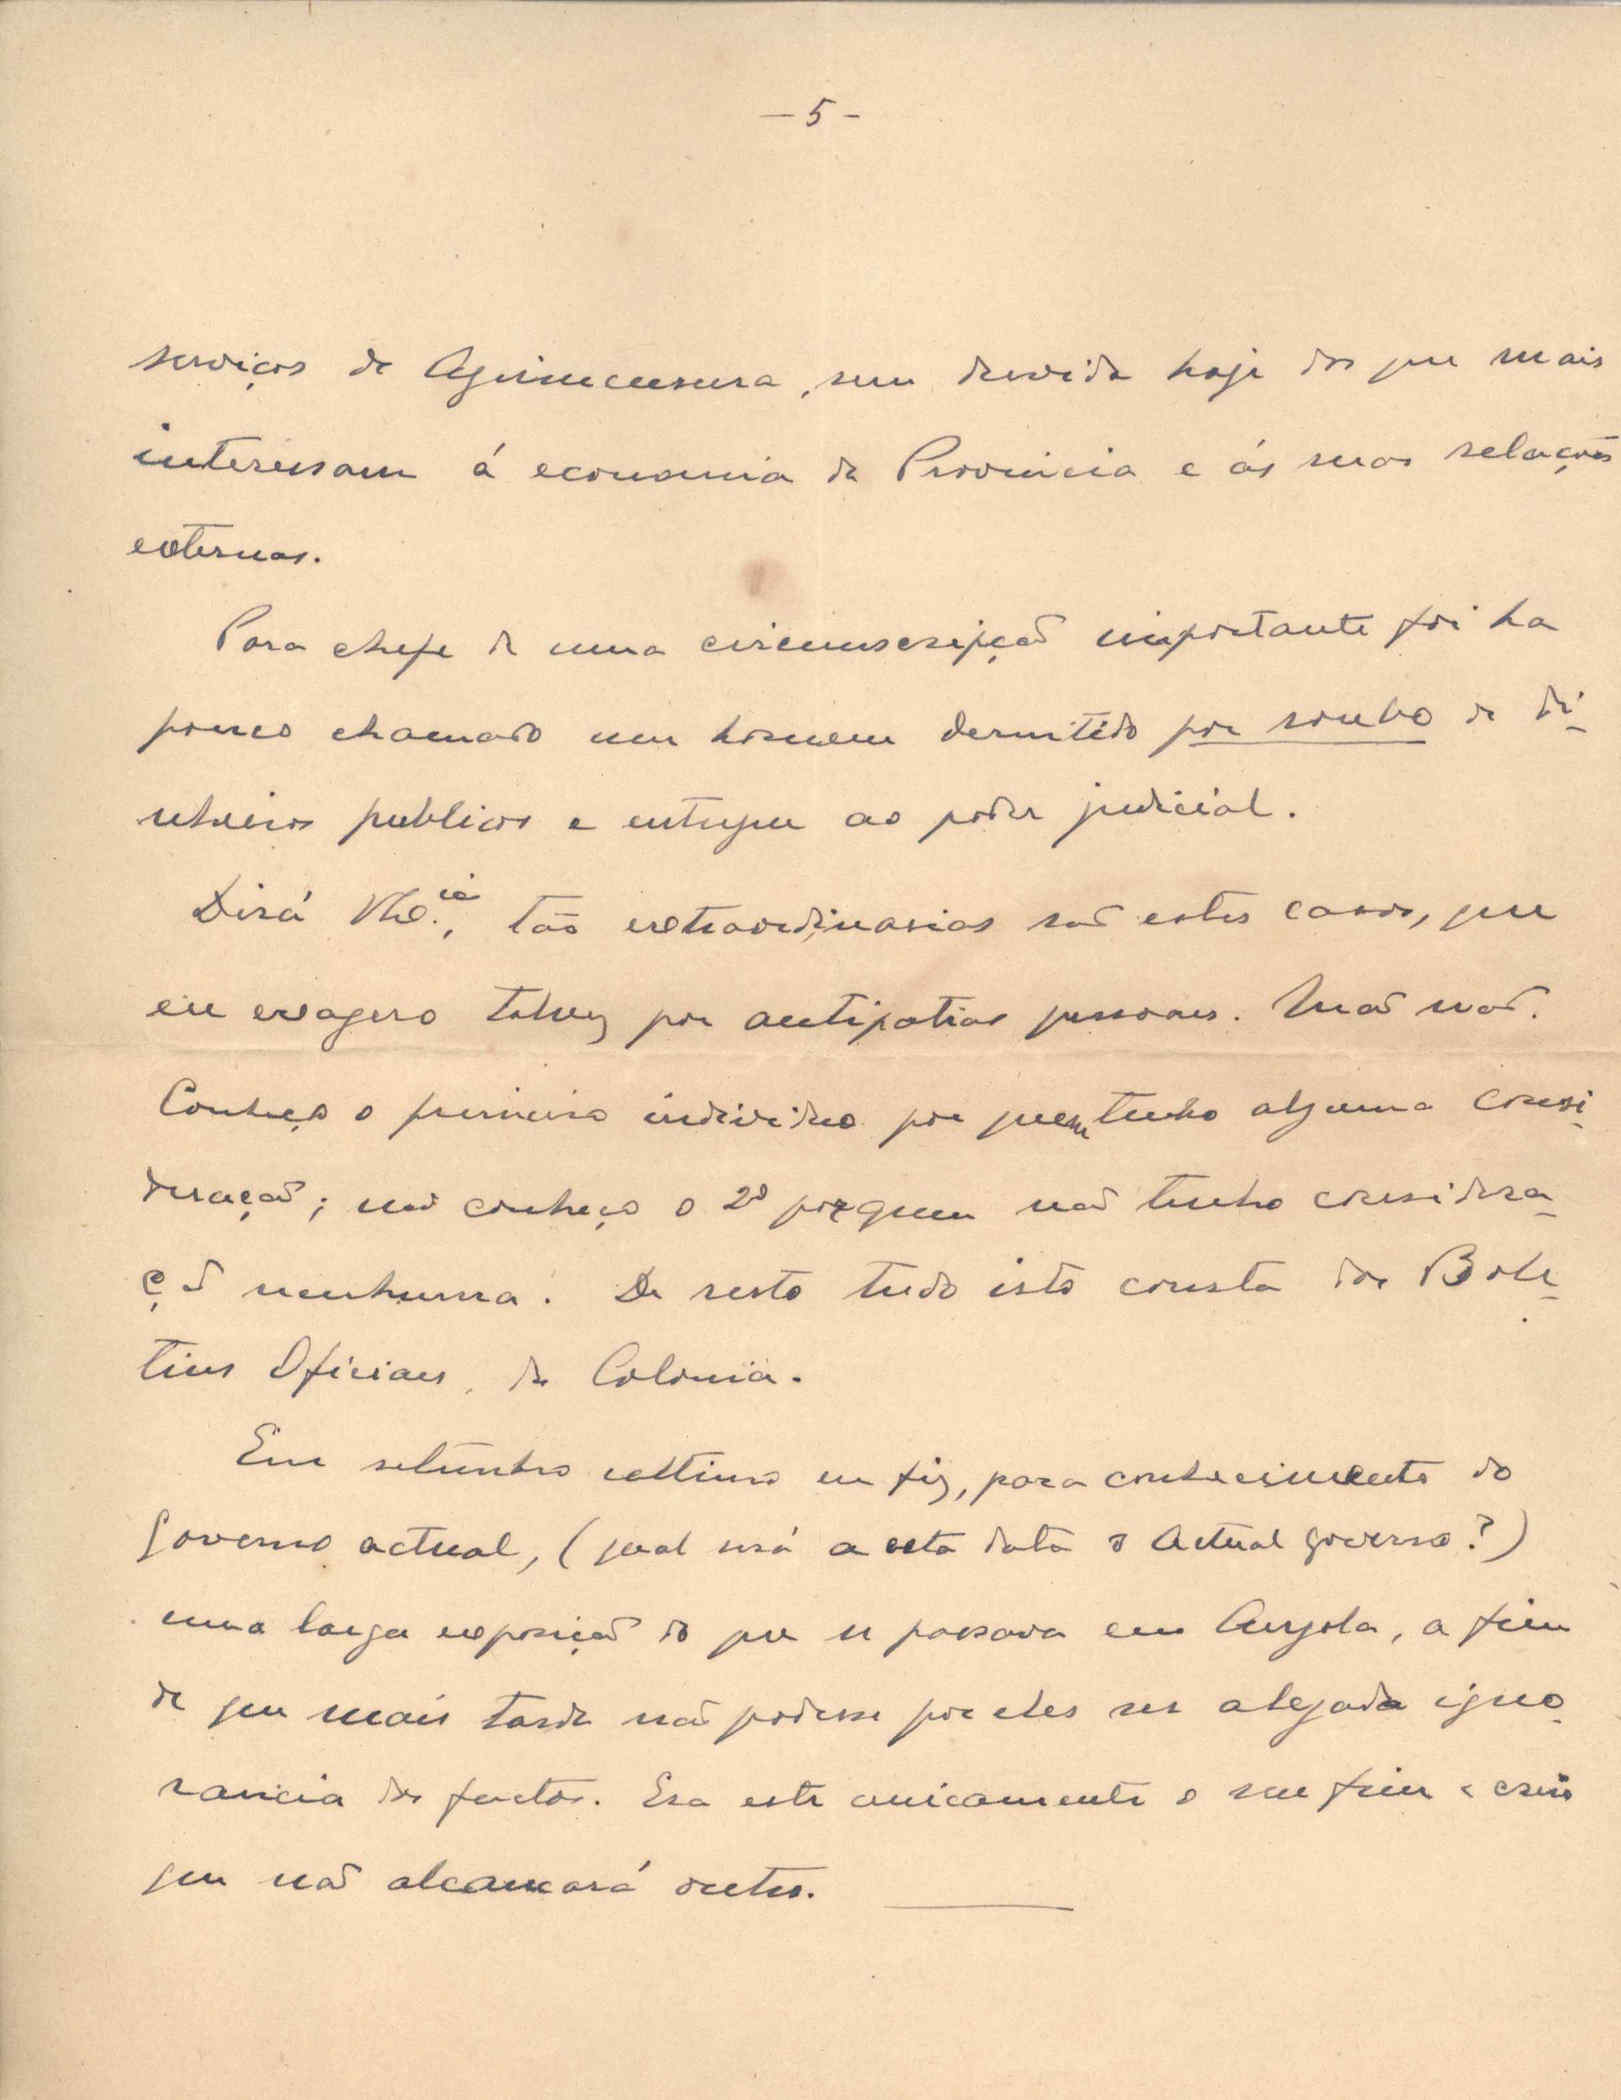 – 5 –
serviços de Agrimensura, sem duvida hoje dos que mais
interessam á economia da Provincia e ás suas relações
externas.
Para chefe de uma circunscripção importante foi ha
pouco chamado um homem demitido por roubo de di-
nheiros publicos e entregue ao poder judicial.
Dirá V. Ex.cia, tão extraordinarios são estes casos, que
eu exagero talvez por antipatias pessoaes. Mas não.
Conheço o primeiro individuo por quem tenho alguma consi-
deração; não conheço o 2º por quem não tenho considera-
ção nenhuma. De resto tudo isto consta dos Bole-
tins Oficiaes da Colonia.
Em setembro ultimo eu fiz, para conhecimento do
Governo actual, (qual será a esta data o actual governo?)
uma larga exposição do que se passava em Angola, a fim
de que mais tarde não podesse por eles ser alegada igno-
rancia dos factos. Era este unicamente o seu fim e creio
que não alcançará outro.